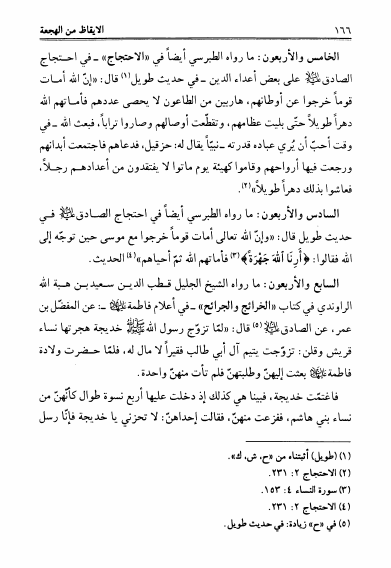 ١٦٦ الايقاظ من الهجعة
الخامس والأربعون: ما رواه الطبرسي أيضاً في «الاحتجاج» ـ في احتجاج
الصادق ﷺ على بعض أعداء الدين ـ في حديث طويل(١) قال: «إنّ الله أمات
قوماً خرجوا عن أوطانهم، هاربين من الطاعون لا يحصى عددهم فأماتهم الله
دهراً طويلاً حتّى بليت عظامهم، وتقطّعت أوصالهم وصاروا تراباً، فبعث الله ـ في
وقت أحبّ أن يُري عباده قدرته ـ نبيّاً يقال له: حزقيل، فدعاهم فاجتمعت أبدانهم
ورجعت فيها أرواحهم وقاموا كهيئة يوم ماتوا لا يفتقدون من أعدادهم رجلاً،
فعاشوا بذلك دهراً طويلاً»(٢).
السادس والأربعون: ما رواه الطبرسي أيضاً في احتجاج الصادق ﷺ في
حديث طويل قال: «وإنّ الله تعالى أمات قوماً خرجوا مع موسى حين توجّه إلى
الله فقالوا: ﴿أَرِنَا اللهَ جَهْرَةً﴾(٣) فأماتهم الله ثمّ أحياهم»(٤) الحديث.
السابع والأربعون: ما رواه الشيخ الجليل قطب الدين سعيد بن هبة الله
الراوندي في كتاب «الخرائج والجرائح» ـ في أعلام فاطمة ﷺ ـ: عن المفضّل بن
عمر، عن الصادق ﷺ(٥) قال: «لمّا تزوّج رسول الله ﷺ خديجة هجرتها نساء
قريش وقلن: تزوّجت يتيم آل أبي طالب فقيراً لا مال له، فلمّا حضرت ولادة
فاطمة ﷺ بعثت إليهنّ وطلبتهنّ فلم تأت منهنّ واحدة.
فاغتمّت خديجة، فبينا هي كذلك إذ دخلت عليها أربع نسوة طوال كأنّهن من
نساء بني هاشم، ففزعت منهنّ، فقالت إحداهنّ: لا تحزني يا خديجة فإنّا رسل
(١) (طويل) أثبتناه من «ح، ش، ك».
(٢) الاحتجاج ٢: ٢٣١.
(٣) سورة النساء ٤: ١٥٣.
(٤) الاحتجاج ٢: ٢٣١.
(٥) في «ح» زيادة: في حديث طويل.